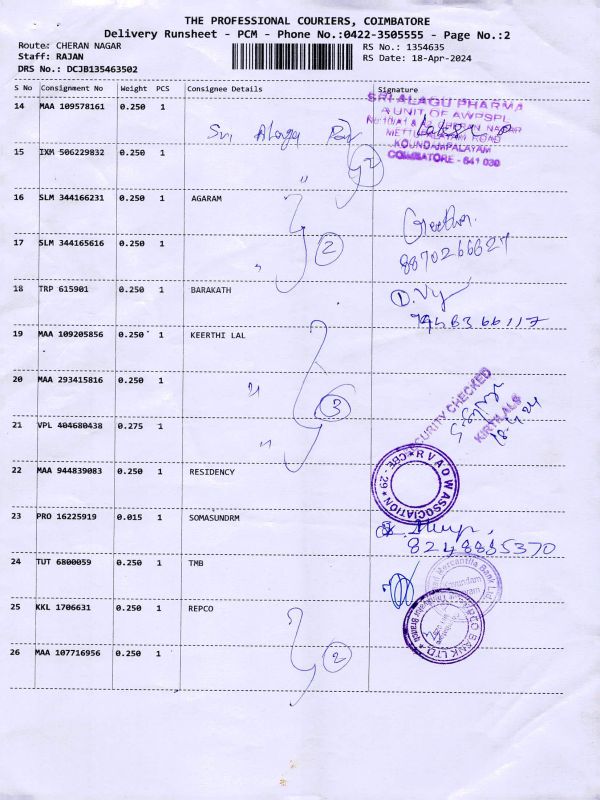 THE PROFESSIONAL COURIERS, COIMBATORE
Delivery Runsheet - PCM - Phone No.:0422-3505555 - Page No.:2
Route: CHERAN NAGAR
RS No.: 1354635
Staff: RAJAN
RS Date: 18-Apr-2024
DRS No.: DCJB135463502
S No Consignment No Weight PCS Consignee Details Signature
14 MAA 109578161 0.250 1
SRI ALAGU PHARMA
A UNIT OF AWPSPL
METTUPALAYAM ROAD
KOUNDAMPALAYAM
COIMBATORE - 641 030
Sri Alagu
15 IXM 506229832 0.250 1
" 2
16 SLM 344166231 0.250 1 AGARAM
Geetha.
8870266627
17 SLM 344165616 0.250 1
" 2
18 TRP 615901 0.250 1 BARAKATH
19 MAA 109205856 0.250 1 KEERTHI LAL
20 MAA 293415816 0.250 1
" 3
SECURITY CHECKED
KIRTILALS
18.4.24
21 VPL 404680438 0.275 1
"
22 MAA 944839083 0.250 1 RESIDENCY
RVAOW ASSOCIATION
CBE - 29
23 PRO 16225919 0.015 1 SOMASUNDRM
8248835370
24 TUT 6800059 0.250 1 TMB
Mercantile Bank Ltd
25 KKL 1706631 0.250 1 REPCO
REPCO BANK LTD.
26 MAA 107716956 0.250 1
2